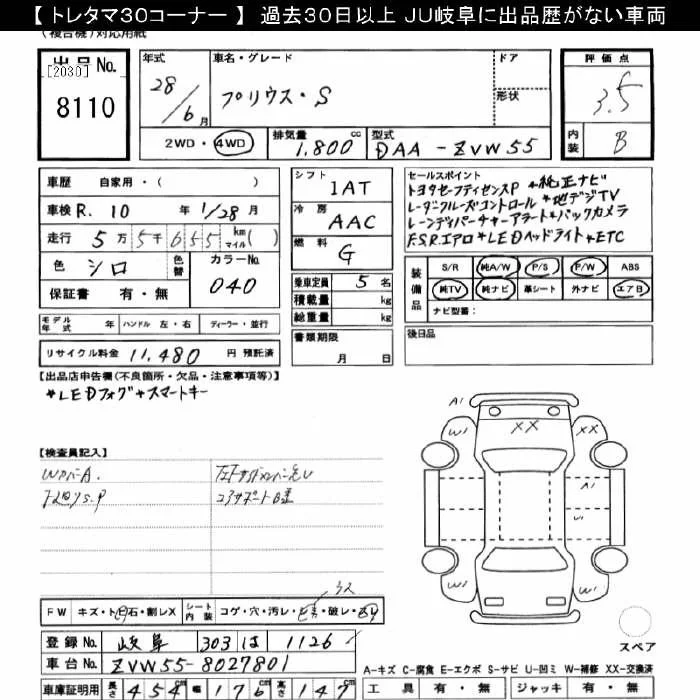 【 トレタマ30コーナー 】 過去30日以上 JU岐阜に出品歴がない車両
(複合機)対応用紙
出品No. [2030] 8110
年式 28/6月
車名・グレード プリウス・S
ドア
形状
評価点 3.5
内装 B
2WD・4WD 排気量 1,800 cc 型式 DAA-ZVW55
車歴 自家用・( )
車検 R. 10 年 1/28 月
走行 5万5千655 km マイル( )
色 シロ 色替 カラーNo. 040
保証書 有・無
シフト 1AT
冷房 AAC
燃料 G
乗車定員 5 名
積載量 kg
総重量 kg
書類期限 月 日
セールスポイント
トヨタセーフティセンスP *純正ナビ
レーダークルーズコントロール *地デジTV
レーンディパーチャーアラート*バックカメラ
F.S.Rエアロ *LEDヘッドライト *ETC
装備品 S/R 純A/W P/S P/W ABS
純TV 純ナビ 革シート 外ナビ エアB
ナビ型番:
後日品
モデル年式 年 ハンドル 左・右 ディーラー・並行
リサイクル料金 11,480 円 預託済
【出品店申告欄(不良箇所・欠品・注意事項等)】
*LEDフォグ *スマートキー
【検査員記入】
A1
W1 XX XX
A1
W2
FW キズ・ト石・割レX シート内装 コゲ・穴・汚レ・・破レ・
登録No. 岐阜 303 は 1126
車台No. ZVW55-8027801
車庫証明用 長さ 454cm 幅 176cm 高さ 147
スペア
A-キズ C-腐食 E-エクボ S-サビ U-凹ミ W-補修 XX-交換済
工具 有・無 ジャッキ 有・無